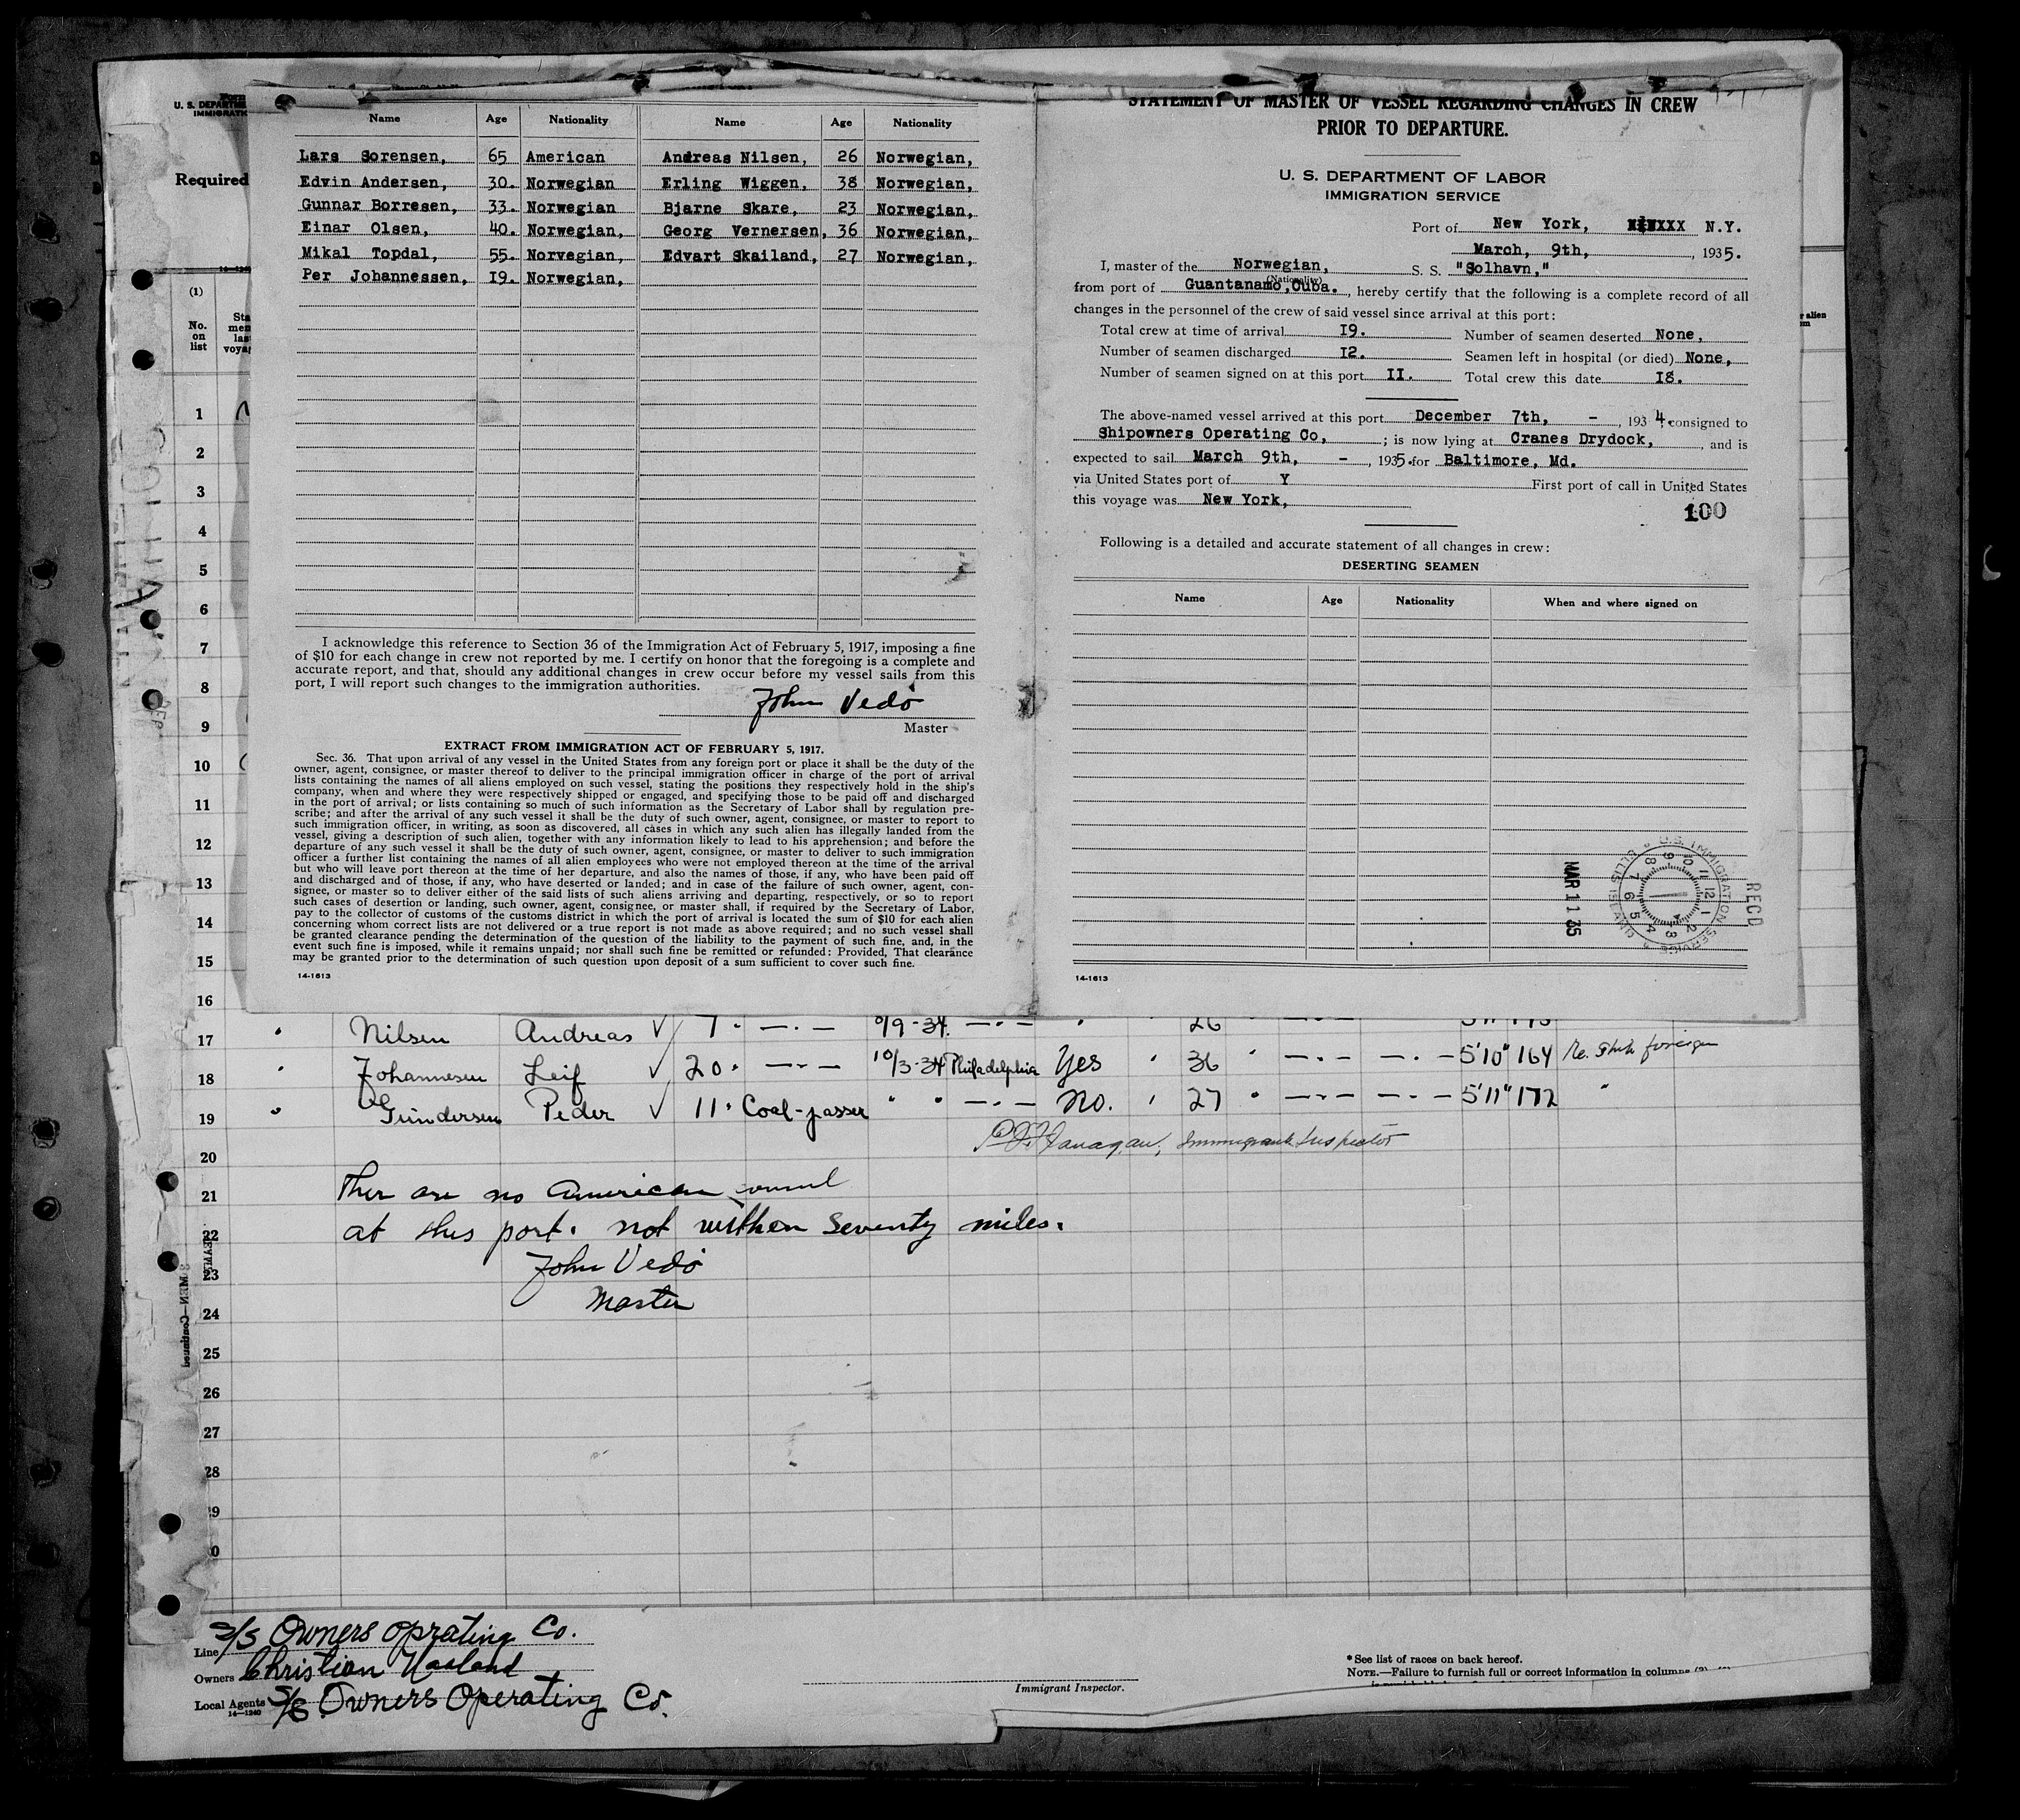 Form
U. S. DEPARTME
IMMIGRATI
Required
14-1240
(1)
No. on list
Sta
men
las
voyag
Name Age Nationality Name Age Nationality
Lars Sorensen, 65 American Andreas Nilsen, 26 Norwegian,
Edvin Andersen, 30. Norwegian Erling Wiggen, 38 Norwegian,
Gunnar Borresen, 33. Norwegian Bjarne Skare, 23 Norwegian,
Einar Olsen, 40. Norwegian, Georg Vernersen, 36 Norwegian,
Mikal Topdal, 55. Norvegian, Edvart Skailand, 27 Norwegian,
Per Johannessen, I9. Norwegian,
I acknowledge this reference to Section 36 of the Immigration Act of February 5, 1917, imposing a fine
of $10 for each change in crew not reported by me. I certify on honor that the foregoing is a complete and
accurate report, and that, should any additional changes in crew occur before my vessel sails from this
port, I will report such changes to the immigration authorities.
John Vedö
Master
EXTRACT FROM IMMIGRATION ACT OF FEBRUARY 5, 1917.
Sec. 36. That upon arrival of any vessel in the United States from any foreign port or place it shall be the duty of the
owner, agent, consignee, or master thereof to deliver to the principal immigration officer in charge of the port of arrival
lists containing the names of all aliens employed on such vessel, stating the positions they respectively hold in the ship's
company, when and where they were respectively shipped or engaged, and specifying those to be paid off and discharged
in the port of arrival; or lists containing so much of such information as the Secretary of Labor shall by regulation pre-
scribe; and after the arrival of any such vessel it shall be the duty of such owner, agent, consignee, or master to report to
such immigration officer, in writing, as soon as discovered, all cases in which any such alien has illegally landed from the
vessel, giving a description of such alien, together with any information likely to lead to his apprehension; and before the
departure of any such vessel it shall be the duty of such owner, agent, consignee, or master to deliver to such immigration
officer a further list containing the names of all alien employees who were not employed thereon at the time of the arrival
but who will leave port thereon at the time of her departure, and also the names of those, if any, who have been paid off
and discharged and of those, if any, who have deserted or landed; and in case of the failure of such owner, agent, con-
signee, or master so to deliver either of the said lists of such aliens arriving and departing, respectively, or so to report
such cases of desertion or landing, such owner, agent, consignee, or master shall, if required by the Secretary of Labor,
pay to the collector of customs of the customs district in which the port of arrival is located the sum of $10 for each alien
concerning whom correct lists are not delivered or a true report is not made as above required; and no such vessel shall
be granted clearance pending the determination of the question of the liability to the payment of such fine, and, in the
event such fine is imposed, while it remains unpaid; nor shall such fine be remitted or refunded: Provided, That clearance
may be granted prior to the determination of such question upon deposit of a sum sufficient to cover such fine.
14-1613
STATEMENT OF MASTER OF VESSEL REGARDING CHANGES IN CREW
PRIOR TO DEPARTURE.
U. S. DEPARTMENT OF LABOR
IMMIGRATION SERVICE
Port of New York, N.Y.
March, 9th, , 1935.
I, master of the Norwegian, S. S. "Solhavn,"
(Nationality)
from port of Guantanamo,Cuba. , hereby certify that the following is a complete record of all
changes in the personnel of the crew of said vessel since arrival at this port:
Total crew at time of arrival I9. Number of seamen deserted None,
Number of seamen discharged I2. Seamen left in hospital (or died) None,
Number of seamen signed on at this port II. Total crew this date I8.
The above-named vessel arrived at this port December 7th, - , 1934, consigned to
Shipowners Operating Co, ; is now lying at Cranes Drydock, , and is
expected to sail March 9th, - , 1935. for Baltimore, Md.
via United States port of Y First port of call in United States
this voyage was New York,
100
Following is a detailed and accurate statement of all changes in crew:
DESERTING SEAMEN
Name Age Nationality When and where signed on
RECD
U.S. IMMIGRATION SERVICE ELLIS ISLAND
MAR 11 35
14-1613
r alien
1
2
3
4
5
6
7
8
9
10
11
12
13
14
15
16
17 " Nilsen Andreas √ 7 " —"— 9-34 —"— " " 26 "
18 " Johannesen Leif √ 20 " —"— 10/3-34 Philadelphia Yes " 36 " —"— —"— 5'10" 164 foreign
19 " Gundersen Peder √ 11 " Coal-passer " " —"— No. " 27 " —"— —"— 5'11" 172 "
Flanagan, Immigrant Inspector
20
21 Ther are no American consul
22 at this port. not within Seventy miles.
23 John Vedö
24 Master
25
26
27
28
29
0
MEN—Continued
Line S/S Owners Oprating Co.
Owners Christian Haaland
Local Agents S/S Owners Operating Co.
14—1240
Immigrant Inspector.
* See list of races on back hereof.
NOTE.—Failure to furnish full or correct information in columns